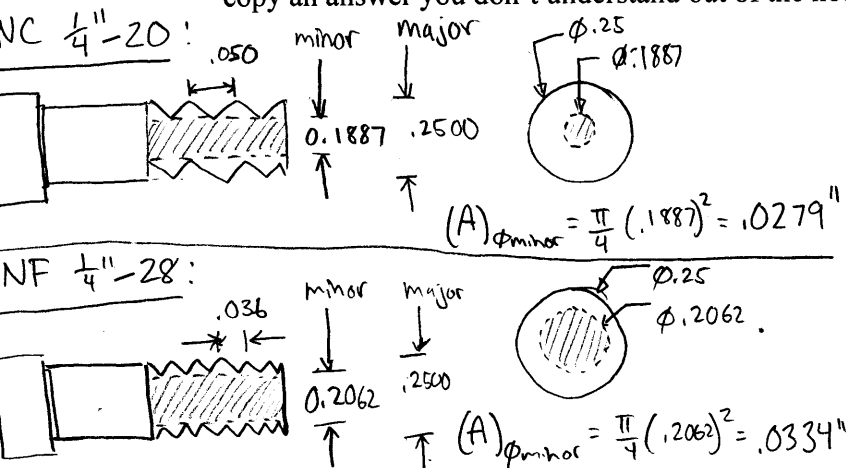 copy an answer you don't understand out of the
NC 1/4"-20:
.050
minor
major
0.1887
.2500
Ø.25
Ø.1887
(A)Øminor = π/4 (.1887)² = .0279"
NF 1/4"-28:
.036
minor
major
0.2062
.2500
Ø.25
Ø.2062.
(A)Øminor = π/4 (.2062)² = .0334"